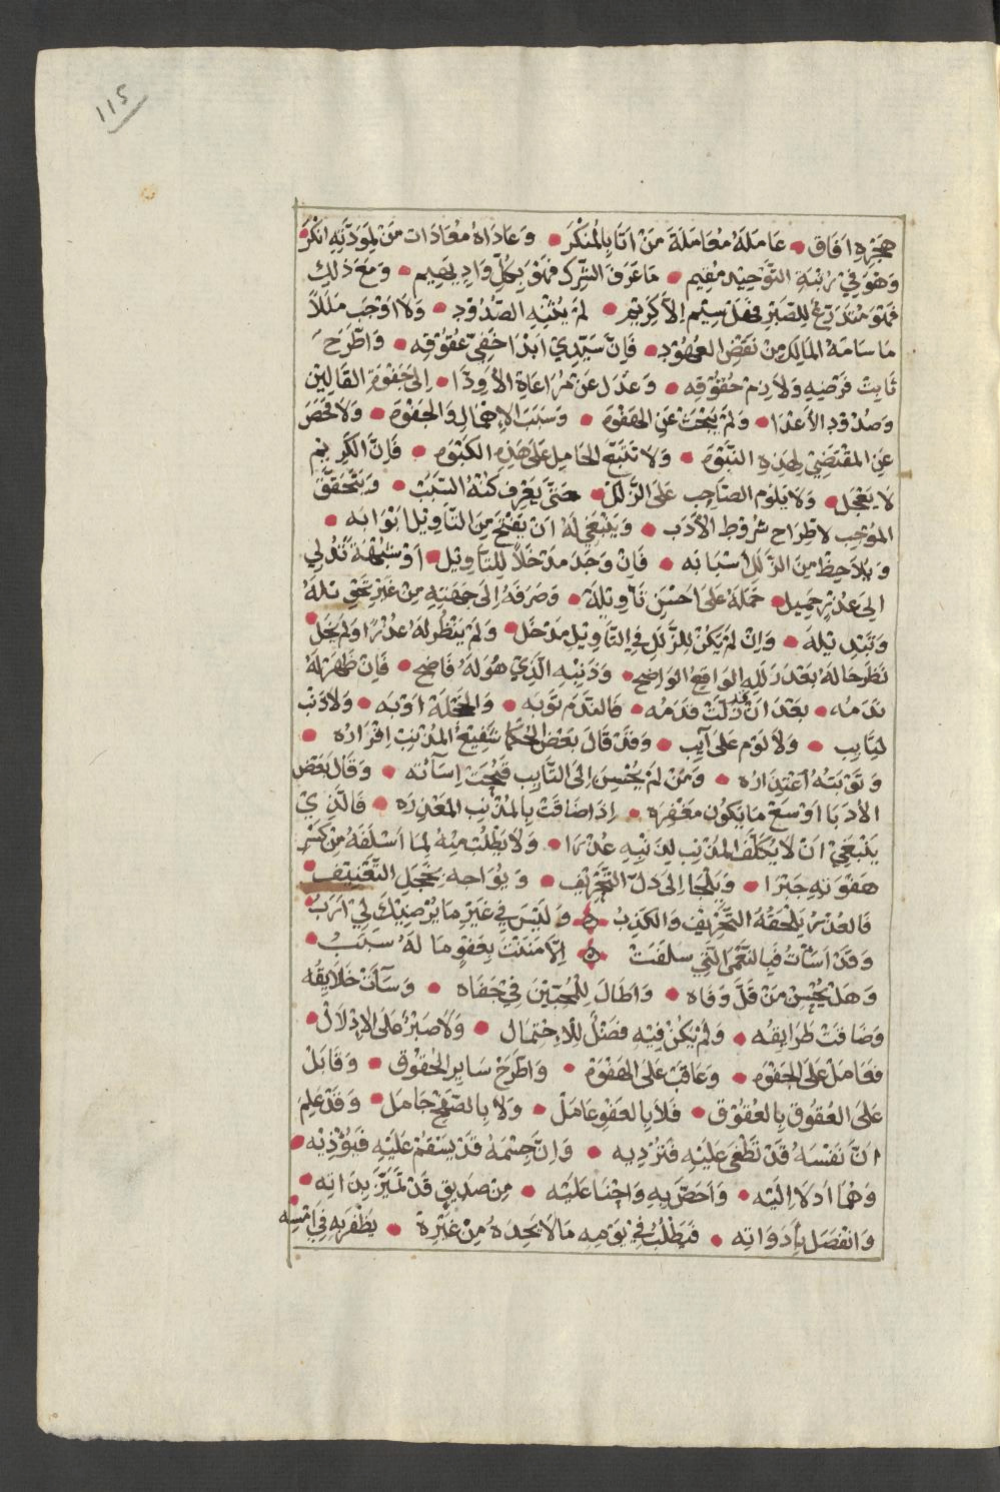 ١١٥
هجره افاق • عَامَلَهُ مُعَامَلَةَ مَنْ اَتَا بِالمُنْكَرَ • وَعَادَاهُ مُعَادَات مَنْ لِمَوَدَّتِهِ انْكَرَ •
وَهْوَ فِيْ رُتْبَةِ التَّوحِيْدِ مُقِيم • مَا عَرَفَ الشِّرك فَهْوَ بِكُلِّ وَادٍ يَهِيم • وَمَعَ ذلِكَ
فَهْوَ مُتَدَرِّعٌ لِلصَبْرِ فَهَلْ سِيَّم الاَّ كَرِيْم • لَمْ يُثْنِهِ الصُدُوْد • وَلا اوْجَبَ مَلَلاً
مَا سَامَهُ المَالِك مِنْ نَقْضِ العُهُوْد • فَاِنَّ سَيِّدِيْ ابْدَا خَفِيَّ عُقُوْقِه • وَاطَّرَحَ
ثَابِتَ فَرْضِهِ وَلاَزِم حُقُوْقِه • وَعَدَلَ عَنْ مُرَاعَاةِ الاَوِدَّا • اِلى جَفْوَةِ القَالِيْن
وَصُدُوْدِ الاَعْدَا • وَلَمْ يَبْحَثْ عَنِ الهَفْوَه • وَسَبَبَ الاِهْمَالِ وَالجَفْوَه • وَلاَ فَحَصَ
عَنِ المُقْتَضِيْ لِهَذِهِ النَّبْوَه • وَلاَ تَتَبَّعَ الحَامِلَ عَلَى هَذِهِ الكَبْوَه • فَاِنَّ الكَرِيْم
لاَ يَعْجَل • وَلاَ يَلوُم الصَاحِب عَلَى الزَّلَلْ • حَتَّى يَعْرِف كُنْهَ السَّبَبْ • وَيَتَحَقَّقَ
المُوْجِب لاطِّرَاح شُرُوْطِ الاَدَب • وَيَنْبَغِي لَهُ انْ يَفْتَحَ مِنَ التَاوِيْل ابْوَابَه •
وَيُلاَحِظُ مِنَ الزَّلَلِ اسْبَابَه • فَاِنْ وَجَدَ مَدْخَلاً لِلتَاوِيْل • اَوْ شُبْهَةً تُدْلِي
اِلى عُذْرٍ جَمِيل • حَمَلَهُ عَلَى احْسَنِ تَاوِيْلَهْ • وَصَرَفَهُ اِلَى حَقِيْقَتِهِ مِنْ غَيْرِ تَحْوِيْلَهُ
وَتَبْدِيْلِهْ • وَاِنْ لَمْ يَكُنْ لِلزَّلَلِ فِي التَاوِيْل مَدْخَل • وَلَمْ يَنْظُر لَهُ عُذْرًا وَلَمْ يَخَل •
نَظَرَ حَالَهُ بَعْدَ زَلَلِهِ الوَاقِعُ الوَاضِح • وَذَنْبِهِ الَّذِيْ هُوَ لَهُ فَاضِح • فَاِنْ ظَهَرَ لَهُ
نَدَمُه • بَعْدَ انْ قد زَلَّتْ قَدَمُه • فَالنَّدَم تَوْبَه • وَالخَجْلَة اَوْبَه • وَلاَ ذَنْب
لِتَايِب • وَلاَ لَوْم عَلَى آيِب • وَقَدْ قَالَ بَعْضُ الحُكَمَا شَفِيْعُ المُذْنِبِ اِقْرَارُه •
وَتَوْبَتُهُ اعْتِذَارُه • وَمَنْ لَمْ يُحْسِنْ اِلَى التَّايِب قَبُحَتْ اِسَاءَتُه • وَقَال بَعْض
الاُدَبَا اوْسَعُ مَا يَكُون مَغْفِرَه • اِذَا ضَاقَتْ بِالمُذْنِبِ المَعْذِرَه • فَالَّذِيْ
يَنْبَغِي اَنْ لاَ يُكَلَّفَ المُذْنِبِ لِذَنْبِهِ عُذْرَا • وَلاَ يَطْلُبُ مِنْهُ لِمَا اسْلَفَهُ مِنْ كَسْرِ
هَفْوَتِهِ جَبْرَا • وَيَلْجَا اِلَى ذُلِّ التَّحْرِيْف • وَيُوَاجِه بِخَجَل التَّعْنِيْف •
فَالعُذْرُ يَلْحَقُهُ التَّحْرِيْفُ وَالكَذِبُ ۞ وَلَيْسَ فِي غَيْرِ مَا يُرْضِيْكَ لِيْ ارَبُ •
وَقَدْ اسَأتُ فَبِالنُعْمَى الَّتِي سَلَفَتْ ۞ اِلاَّ مَنَنْتَ بِعَفْوٍ مَا لَهُ سَبَبُ •
وَهَلْ يُحْسِنُ مَنْ قَلَّ وَفَاه • وَاَطَالَ لِلْمُحِبّيْنَ فِيْ جَفَاه • وَسَاءَتْ خَلاَيِقُه
وَضَاقَتْ طَرَايِقُه • وَلَمْ يَكُنْ فِيْهِ فَضْلٌ لِلاحْتِمَال • وَلاَ صَبْرٌ عَلَى الاِدْلاَلْ •
فَعَامَلَ عَلَى الجَفْوَه • وَعَاقَبَ عَلَى الهَفْوَهْ • وَاطَّرَحَ سَايِرَ الحُقُوْق • وَقَابَلْ
عَلَى العُقُوق بِالعُقُوْق • فَلاَ بِالعَفْوِ عَامَلْ • وَلاَ بِالصَّفْحِ جَامَل • وَقَدْ عَلِمَ
انَّ نَفْسَهُ قَدْ تَطْغَى عَلَيْهِ فَتُرْدِيه • وَاِنَّ جِسْمَهُ قَدْ يَسْقَمْ عَلَيْهِ فَيُؤْذِيْه •
وَهُمَا ادْلاَ اِلَيْه • وَاَخَصُّ بِهِ وَاحْنَا عَلَيْه • مِنْ صَدِيقٍ قَدْ تَمَيَّزَ بِذَاتِه •
وَانْفَصَل بِاَدَوَاتِه • فَيَطْلُبُ فِيْ يَوْمِه مَالاَ يَجِدهُ مِنْ غَيْرِهِ • يَظْفَر بِهِ فِي امْسِه